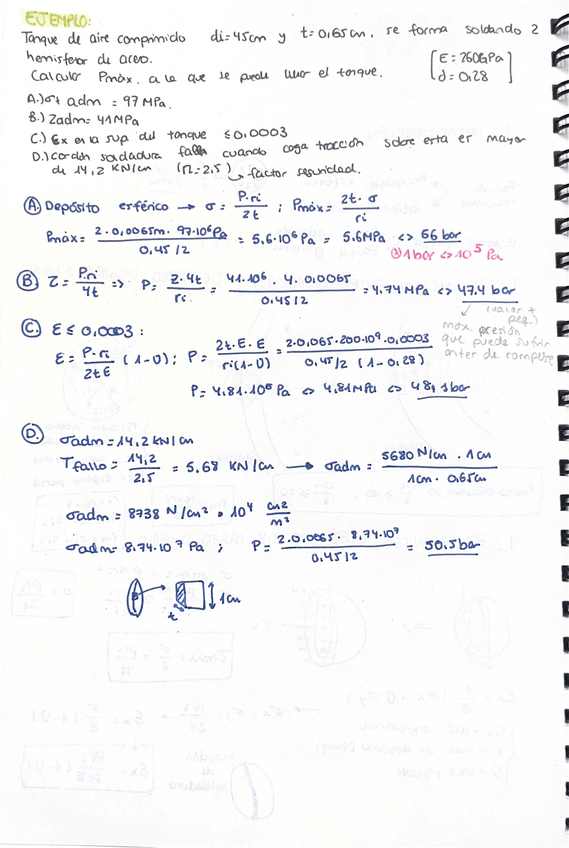 EJEMPLO:
Tanque de aire comprimido di=45cm y t=0,65cm, se forma soldando 2
hemisferios de acero.
Calcular Pmáx. a la que se puede llevar el tanque. [E=260GPa
d=0,28]
A.) σt adm = 97 MPa.
B.) Zadm = 41 MPa
C.) Ex en la sup. del tanque ≤0,0003
D.) cordón soldadura falla cuando carga tracción sobre esta es mayor
de 14,2 KN/cm (n=2,5) ↳ factor seguridad.
A. Depósito esférico → σ = P·ri / 2t ; Pmáx = 2t·σ / ri
Pmáx = 2·0,0065m·97·10⁶Pa / 0,45/2 = 5,6·10⁶Pa = 5,6MPa <> 56 bar
1bar <> 10⁵ Pa
B. τ = P·ri / 4t => P = Z·4t / ri = 41·10⁶·4·0,0065 / 0,45/2 = 4,74 MPa <> 47,4 bar
(valor + peq.)
máx. presión
que puede sufrir
antes de romperse
C. ε ≤ 0,0003 :
ε = P·ri / 2tE (1-υ); P = 2t·E·ε / ri(1-υ) = 2·0,065·200·10⁹·0,0003 / 0,45/2 (1-0,28)
P = 4,81·10⁶ Pa <> 4,81MPa <> 48,1 bar
D. σadm = 14,2 KN/cm
Tfallo = 14,2 / 2,5 = 5,68 KN/cm → σadm = 5680 N/cm · 1cm / 1cm · 0,65cm
σadm = 8738 N/cm² · 10⁴ cm2 / m²
σadm = 8,74·10⁷ Pa ; P = 2·0,0065·8,74·10⁷ / 0,45/2 = 50,5 bar
1cm
t